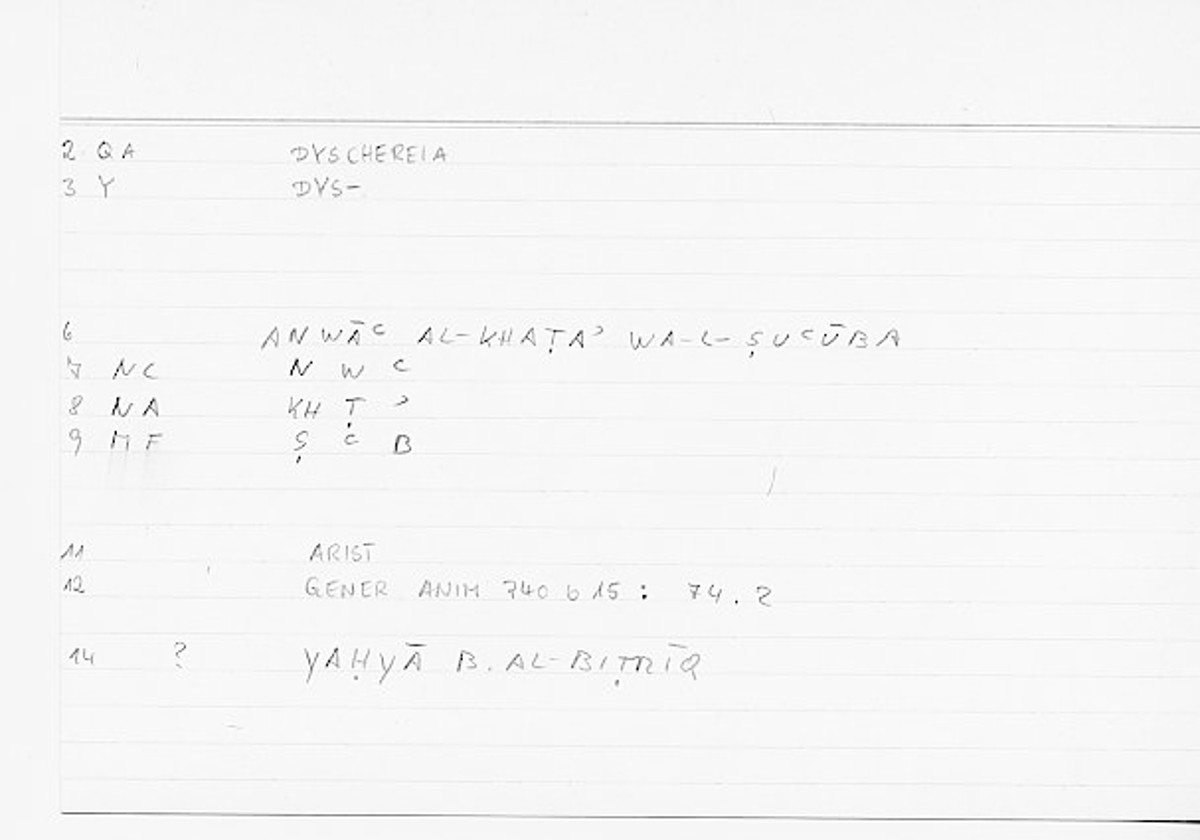 2 QA DYSCHEREIA
3 Y DYS-
6 ANWĀʿ AL-KHAṬAʾ WA-L-ṢUʿŪBA
7 NC N W ʿ
8 NA KH Ṭ ʾ
9 MF Ṣ ʿ B
11 ARIST
12 GENER ANIM 740 b 15 : 74.2
14 ? YAḤYĀ B. AL-BIṬRĪQ